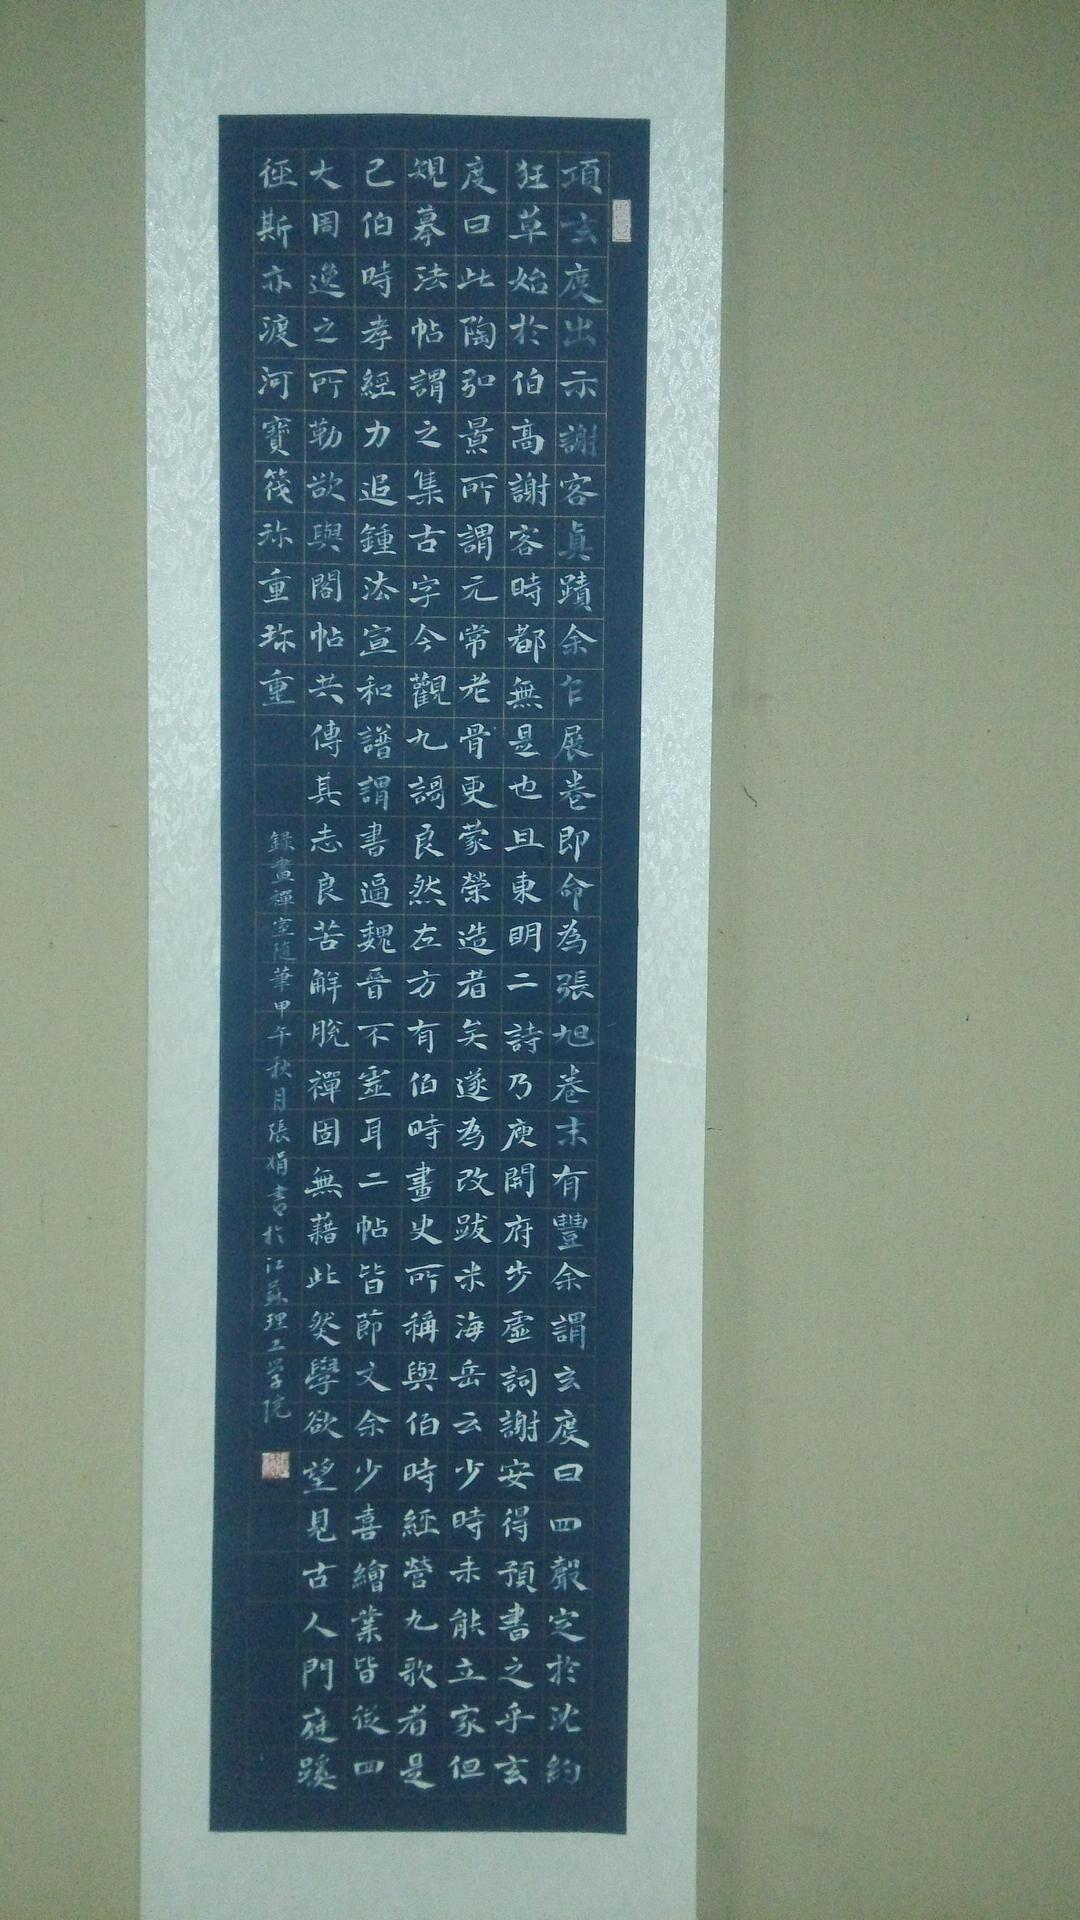 項玄度出示謝客真蹟余乍展卷即命為張旭卷末有豐余謂玄度曰四聲定於沈約
狂草始於伯高謝客時都無是也且東明二詩乃庾開府步虛詞謝安得預書之乎玄
度曰此陶弘景所謂元常老骨更蒙榮造者矣遂為改跋米海岳云少時未能立家但
規摹法帖謂之集古字今觀九謌良然左方有伯時畫史所稱與伯時經營九歌者是
已伯時孝經力追鍾法宣和譜謂書逼魏晉不虛耳二帖皆節文余少喜繪業皆從四
大周逸之所勒欲與閣帖共傳其志良苦解脫禪固無藉此然學欲望見古人門庭蹊
徑斯亦渡河寶筏珎重珎重
錄畫禪室隨筆甲午秋月張娟書於江蘇理工学院